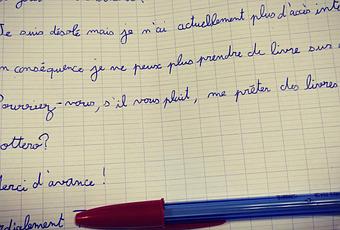 Je suis désolé mais je n'ai actuellement plus d'accès inte
n conséquence je ne peux plus prendre de livre sur
Pourriez-vous, s'il vous plaît, me prêter des livres
ottero?
Merci d'avance !
rdialement